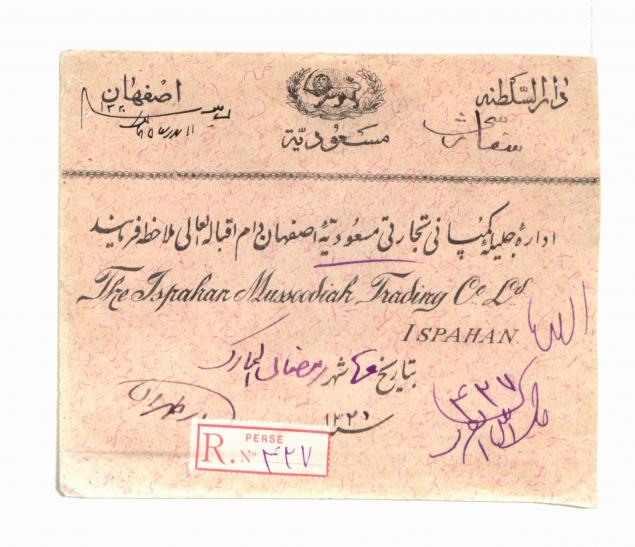 دارالسلطنه
اصفهان
مسعودیة
سفارشی
ادارهٔ جلیلهٔ کمپانی تجارتی مسعودیهٔ اصفهان دام اقباله العالی ملاحظه فرمایند
The Ispahan Mussoodiah Trading Co. Ld.
ISPAHAN.
بتاریخ شهر رمضان المبارک
سنه ۱۳۲۰
از طهران
۴۲۷
PERSE
R. No ۴۲۷